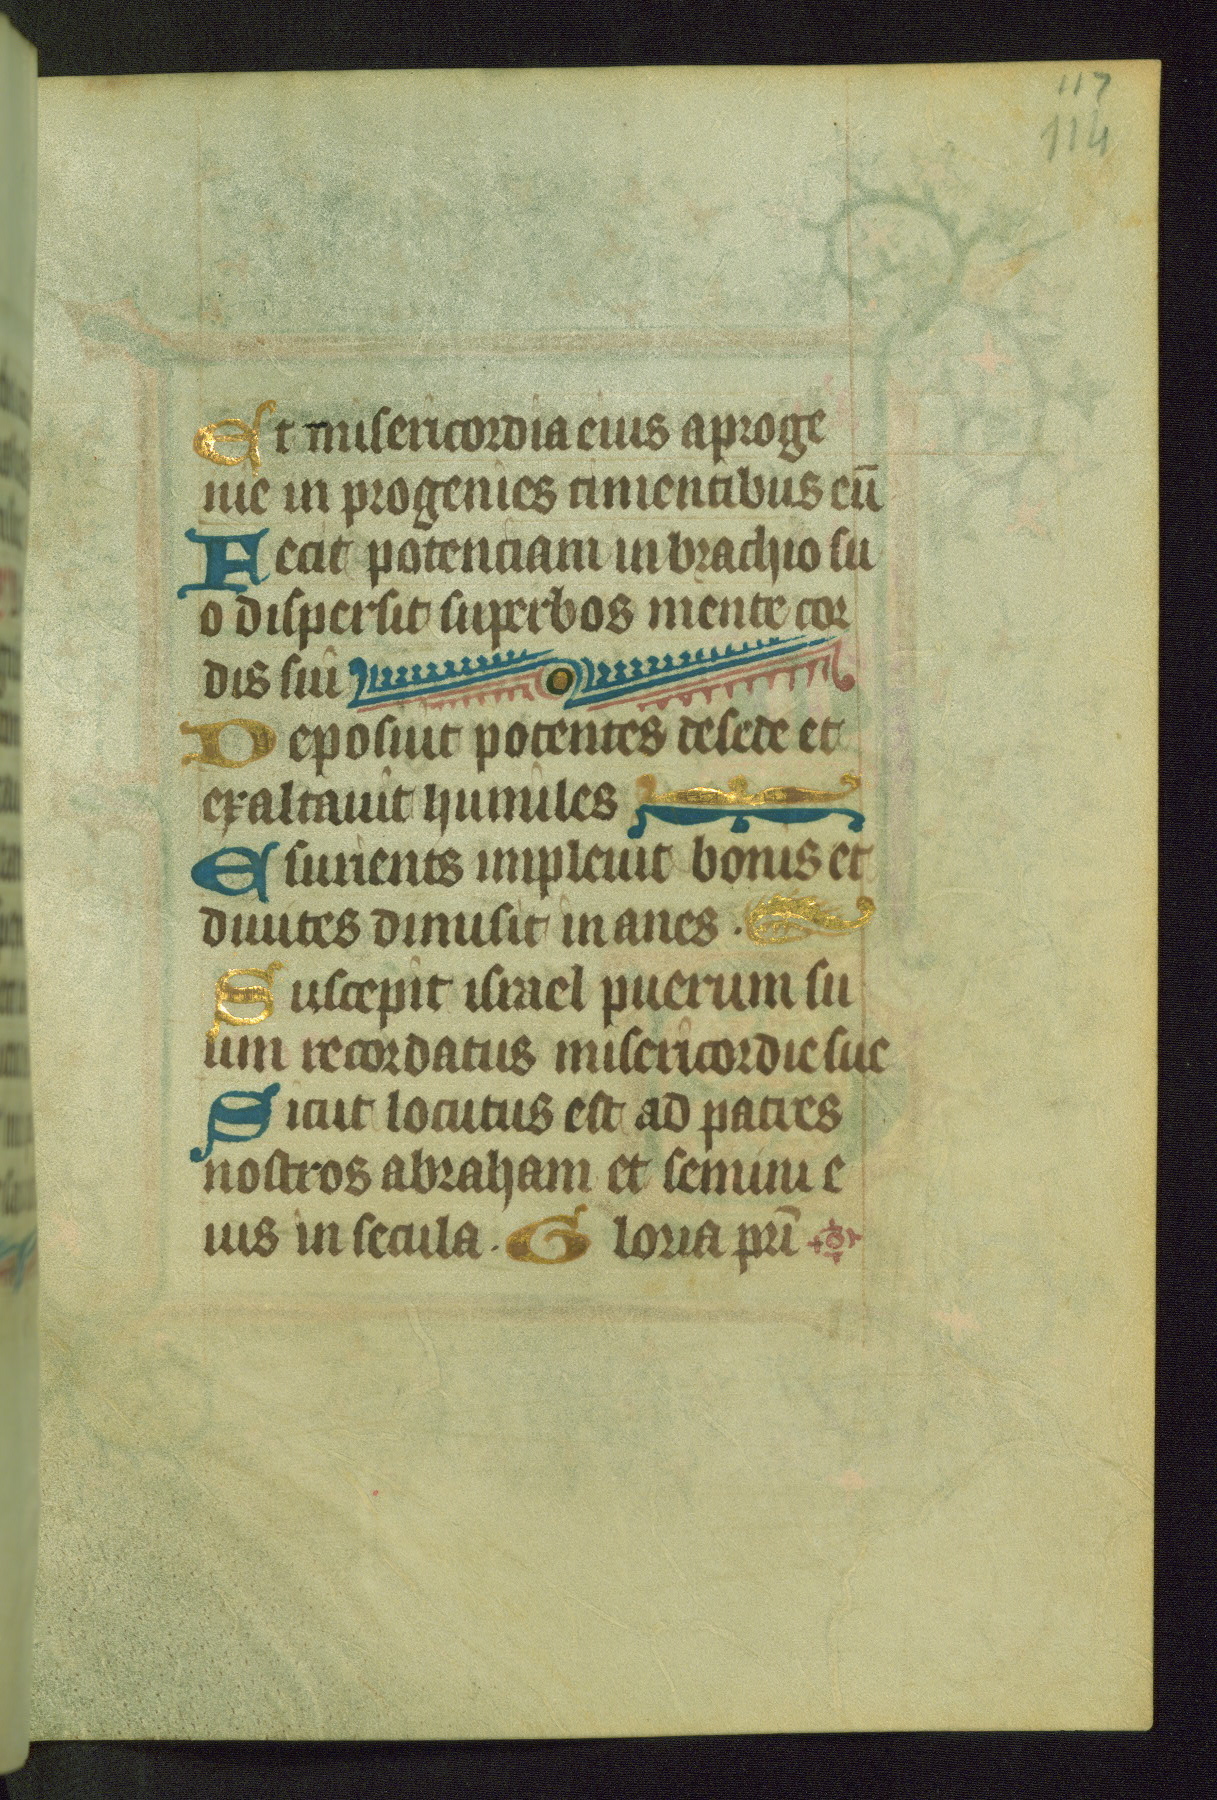 117
114
Et misericordia eius a proge
nie in progenies timentibus eū
Fecit potentiam in brachio su
o dispersit superbos mente cor
dis sui
Deposuit potentes de sede et
exaltauit humiles
Esurients impleuit bonis et
diuites dimisit inanes .
Suscepit israel puerum su
um recordatus misericordie sue
Sicut locutus est ad patres
nostros abraham et semini e
ius in secula . Gloria pri̅